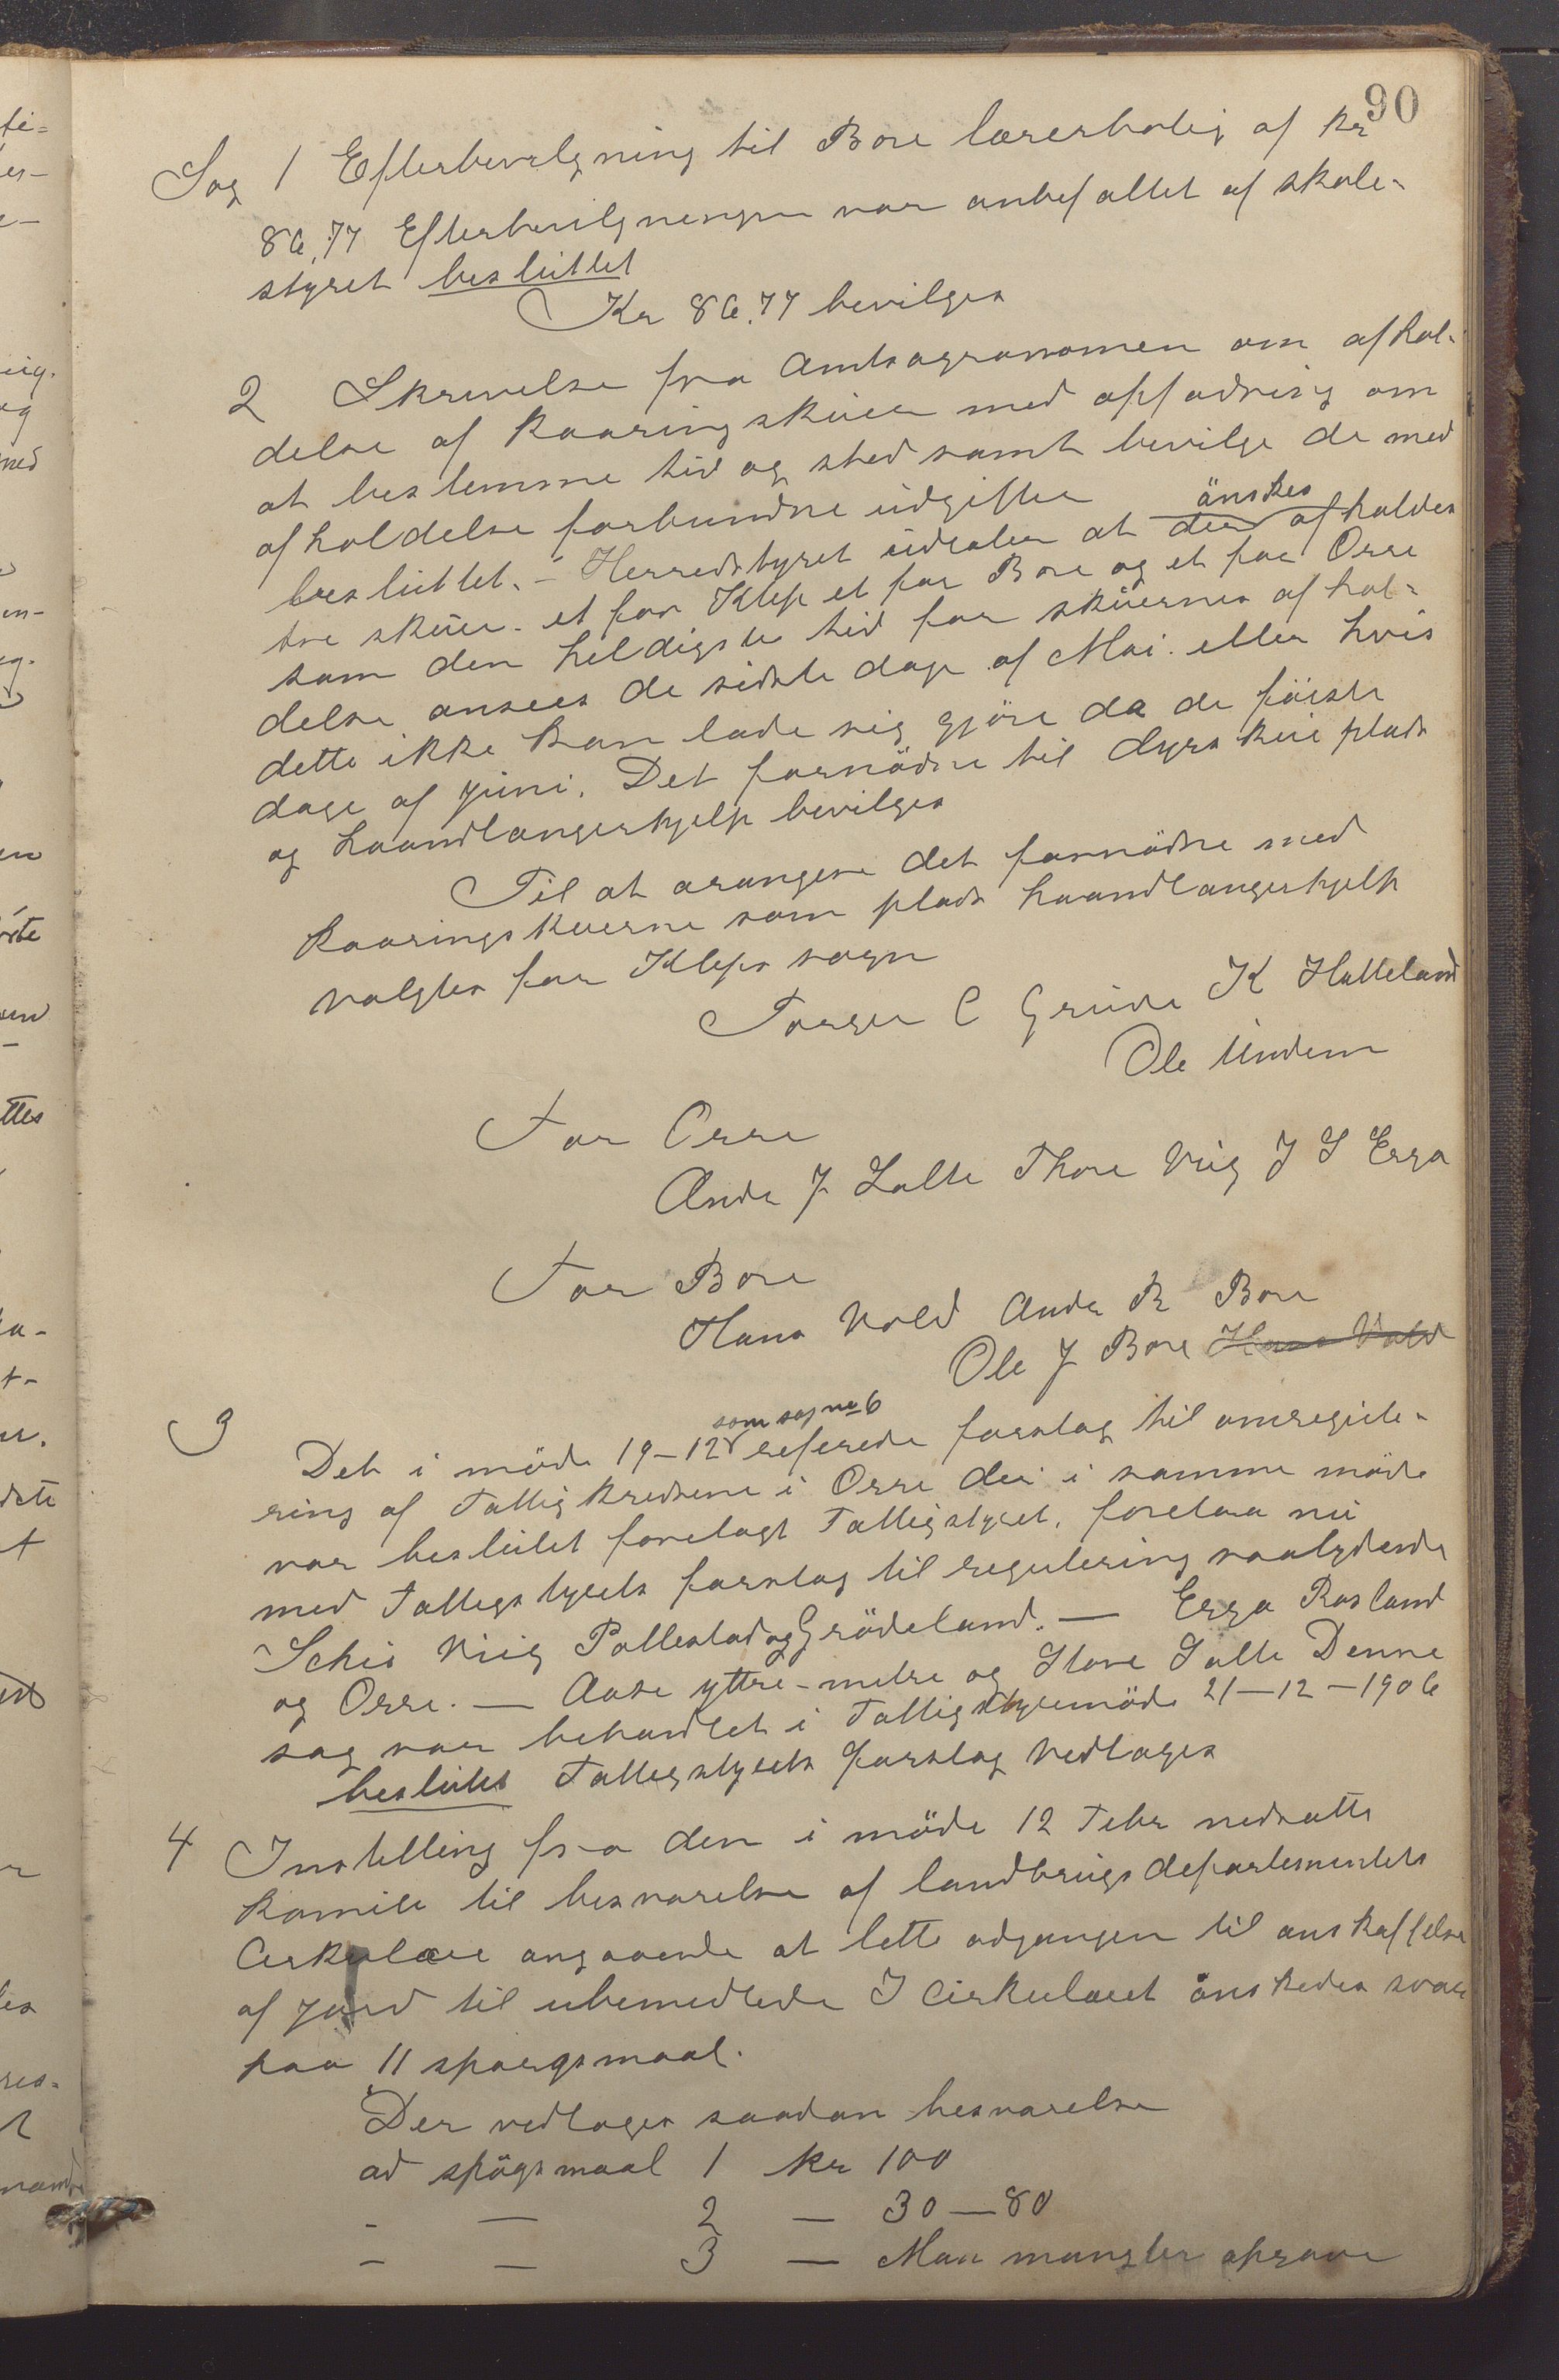 90
Sag 1 Efterbevilgning til Bore lærerbolig af kr
86,77 Efterbevilgningen var anbefallet af skole-
styret besluttet
Kr 86,77 bevilges
2 Skrivelse fra Amtsagronomen om afhol-
delse af kaaringskuer med opfodring om
at bestemme tid og sted samt bevilge de med
afholdelse forbundne udgifter
önskes
besluttet. - Herredstyret udtaler at der afholdes
tre skuer. et for Klep et for Bore og et for Orre
som den heldigste tid for skuernes afhol-
delse ansees de sidste dage af Mai. eller hvis
dette ikke kan lade sig gjöre da de förste
dage af juni. Det fornödne til dyrskueplads
og haandlangerhjelp bevilges
Til at arangere det fornödne med
kaaringskuerne som plads haandlangerhjelp
valgtes for Kleps sogn
Torger C Grude K Hatteland
Ole Undem
For Orre
Anda J Salte Thore Viig J S Erga
For Bore
Hans Vold Anda R Bore
Ole J Bore Hans Vold
som sag no 6
3 Det i möde 19-12 referede forslag til omregule-
ring af Fattigkredsene i Orre der i samme möde
var beslutet forelagt Fattigstyret, forelaa nu
med Fattigstyrets forslag til regulering saalydende
Schie Viig Pollestad og Grödeland. — Erga Rasland
og Orre. — Aase yttre - metre og Stove Salte Denne
sag var behandlet i Fattigstyremöde 21-12-1906
beslutet Fattigstyrets forslag vedtages
4 Instelling fra den i möde 12 Febr nedsatte
komite til besvarelse af landbrugsdepartementets
Cirkulære angaaende at lette adgangen til anskaffelse
af jord til ubemidlede I Cirkulæret önskedes svar
paa 11 spørgsmaal.
Der vedtages saadan besvarelse
ad spögsmaal 1 kr 100
- — 2 — 30—80
- — 3 — Man mangler opgave